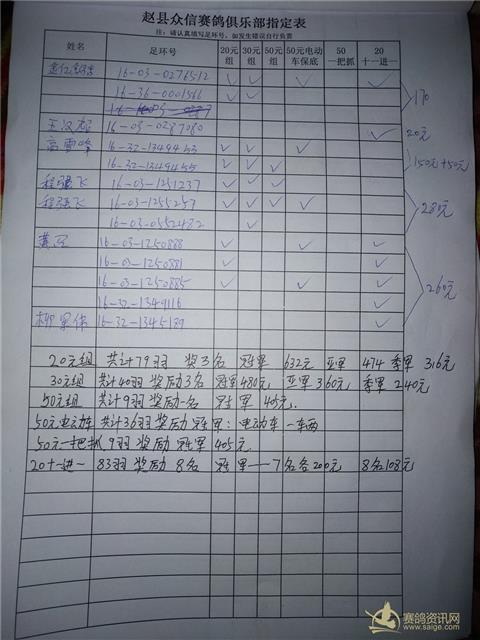 赵县众信赛鸽俱乐部指定表
注：请认真填写足环号，如发生错误自行负责
姓名 足环号 20元组 30元组 50元组 50元电动车保底 50一把抓 20十一进一
16-03-0276512 ✓ ✓ ✓ ✓
16-36-0001566 ✓ ✓
170
王汉
16-03-0287080 ✓ 20元
高雪峰 16-32-1349453 ✓ ✓ ✓
16-32-1349455 ✓ ✓ ✓
150元+50元
程强飞 16-03-1251237 ✓ ✓ ✓
程强飞 16-03-1255257 ✓ ✓ ✓ ✓
280元
16-03-0552482 ✓
黄 16-03-1250888 ✓ ✓ ✓
16-03-1250881 ✓ ✓
16-03-1250885 ✓ ✓ ✓
260元
16-32-1349116 ✓
柳军伟 16-32-1345139 ✓
20元组 共计79羽 奖3名 冠军 632元 亚军 474 季军 316元
30元组 共计40羽 奖励3名 冠军480元 亚军360元 季军240元
50元组 共计9羽 奖励一名 冠军 405元.
50元电动车 共计36羽 奖励冠军：电动车一车两
50元一把抓 9羽 奖励 冠军 405元
20十一进一 83羽 奖励 8名 冠军——7名各200元 8名108元
赛鸽资讯网
www.saige.com